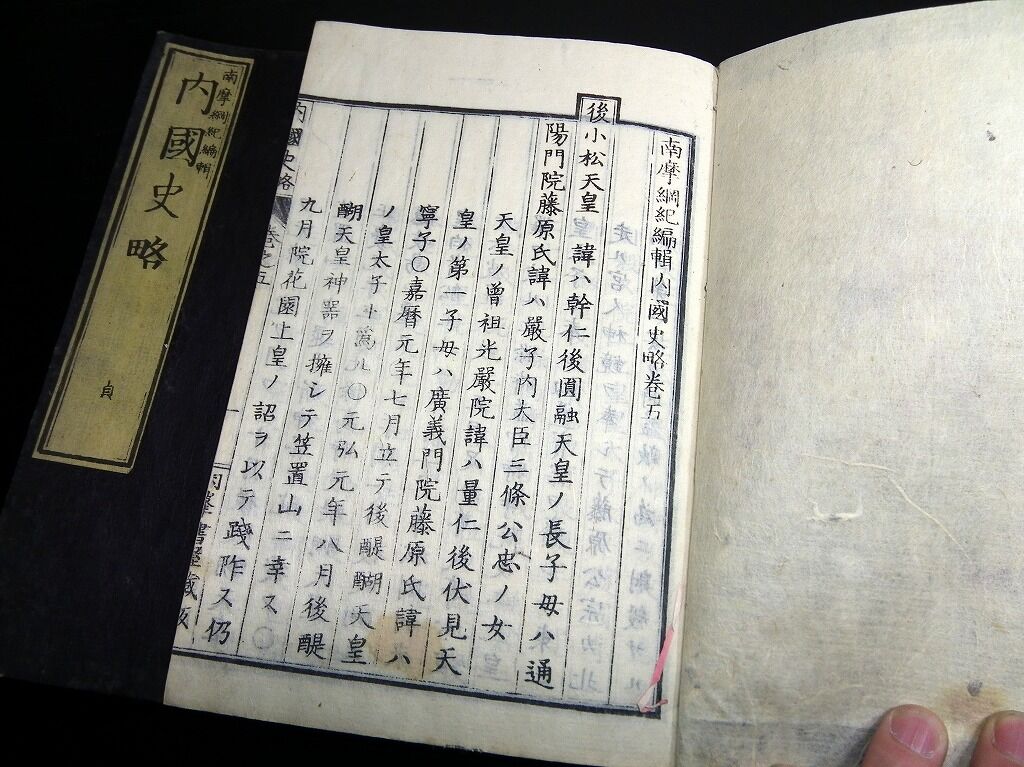 南摩綱紀編輯
内國史略
貞
南摩綱紀編輯内國史略卷五
後小松天皇 諱ハ幹仁後圓融天皇ノ長子母ハ通
陽門院藤原氏諱ハ嚴子内大臣三條公忠ノ女
天皇ノ曾祖光嚴院諱ハ量仁後伏見天
皇ノ第一子母ハ廣義門院藤原氏諱ハ
寧子〇嘉暦元年七月立テ後醍醐天皇
ノ皇太子ト爲ル〇元弘元年八月後醍
醐天皇神器ヲ擁シテ笠置山ニ幸ス〇
九月院花園上皇ノ詔ヲ以テ踐祚ス仍
内國史略 卷之五 一 書屋藏版